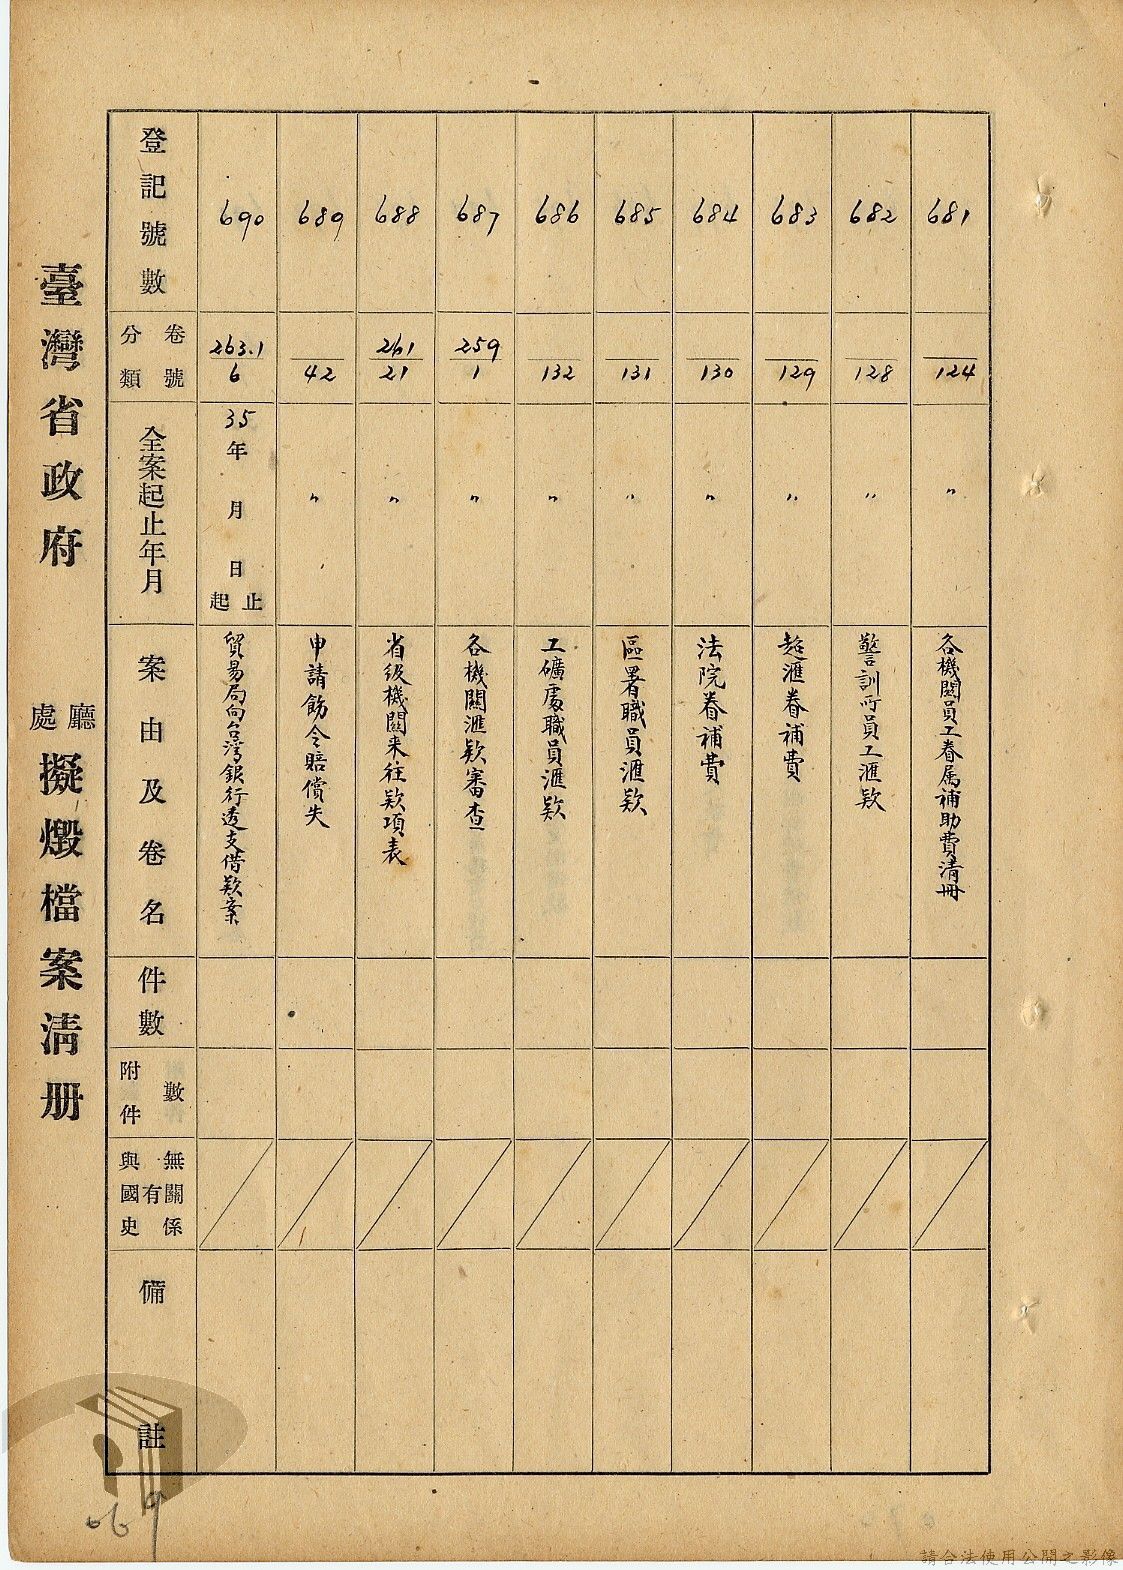 臺灣省政府 廳處 擬燬檔案清册
登記號數 卷號 分類 全案起止年月 案由及卷名 件數 附件數 與國史有無關係 備註
690 263.1/6 35年 月 日 起止 貿易局向台灣銀行透支借欵案
689 42 〃 申請飭令賠償失
688 261/21 〃 省級機關來往欵項表
687 259/1 〃 各機關滙欵審查
686 132 〃 工礦處職員滙欵
685 131 〃 區署職員滙欵
684 130 〃 法院眷補費
683 129 〃 超滙眷補費
682 128 〃 警訓所員工滙欵
681 124 〃 各機關員工眷属補助費清冊
069
請合法使用公開之影像